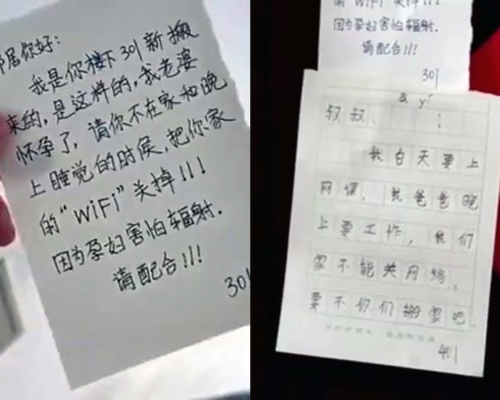 邻居你好:
我是你楼下301新搬
来的,是这样的,我老婆
怀孕了,请你不在家和晚
上睡觉的时侯,把你家
的“WiFi”关掉!!!
因为孕妇害怕辐射.
请配合!!!
301
因为孕妇害怕辐射.
请配合!!!
301
叔叔,
我白天要上
网课,我爸爸晚
上要工作,我们
家不能关网络。
要不们们搬家吧。
401